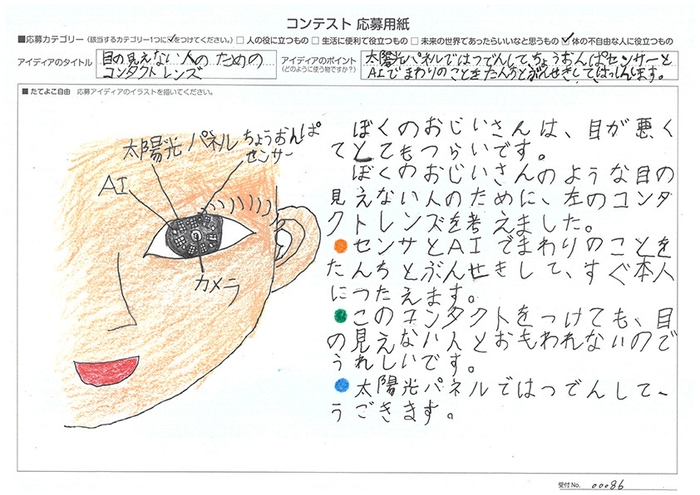 コンテスト 応募用紙
■応募カテゴリー（該当するカテゴリー1つに✓をつけてください。） □人の役に立つもの □生活に便利で役立つもの □未来の世界であったらいいなと思うもの ☑体の不自由な人に役立つもの
アイディアのタイトル
目の見えない人のための
コンタクトレンズ
アイディアのポイント
（どのように使う物ですか？）
太陽光パネルではつでんして、ちょうおんぱセンサーと
AIでまわりのことをたんちとぶんせきしてはっしんします。
■たてよこ自由 応募アイディアのイラストを描いてください。
太陽光パネル
ちょうおんぱ
センサー
AI
カメラ
ぼくのおじいさんは、目が悪く
てとてもつらいです。
ぼくのおじいさんのような目の
見えない人のために、左のコンタ
クトレンズを考えました。
●センサとAIでまわりのことを
たんちとぶんせきして、すぐ本人
につたえます。
●このコンタクトをつけても、目
の見えない人とおもわれないので
うれしいです。
●太陽光パネルではつでんして、
うごきます。
受付No. 00086